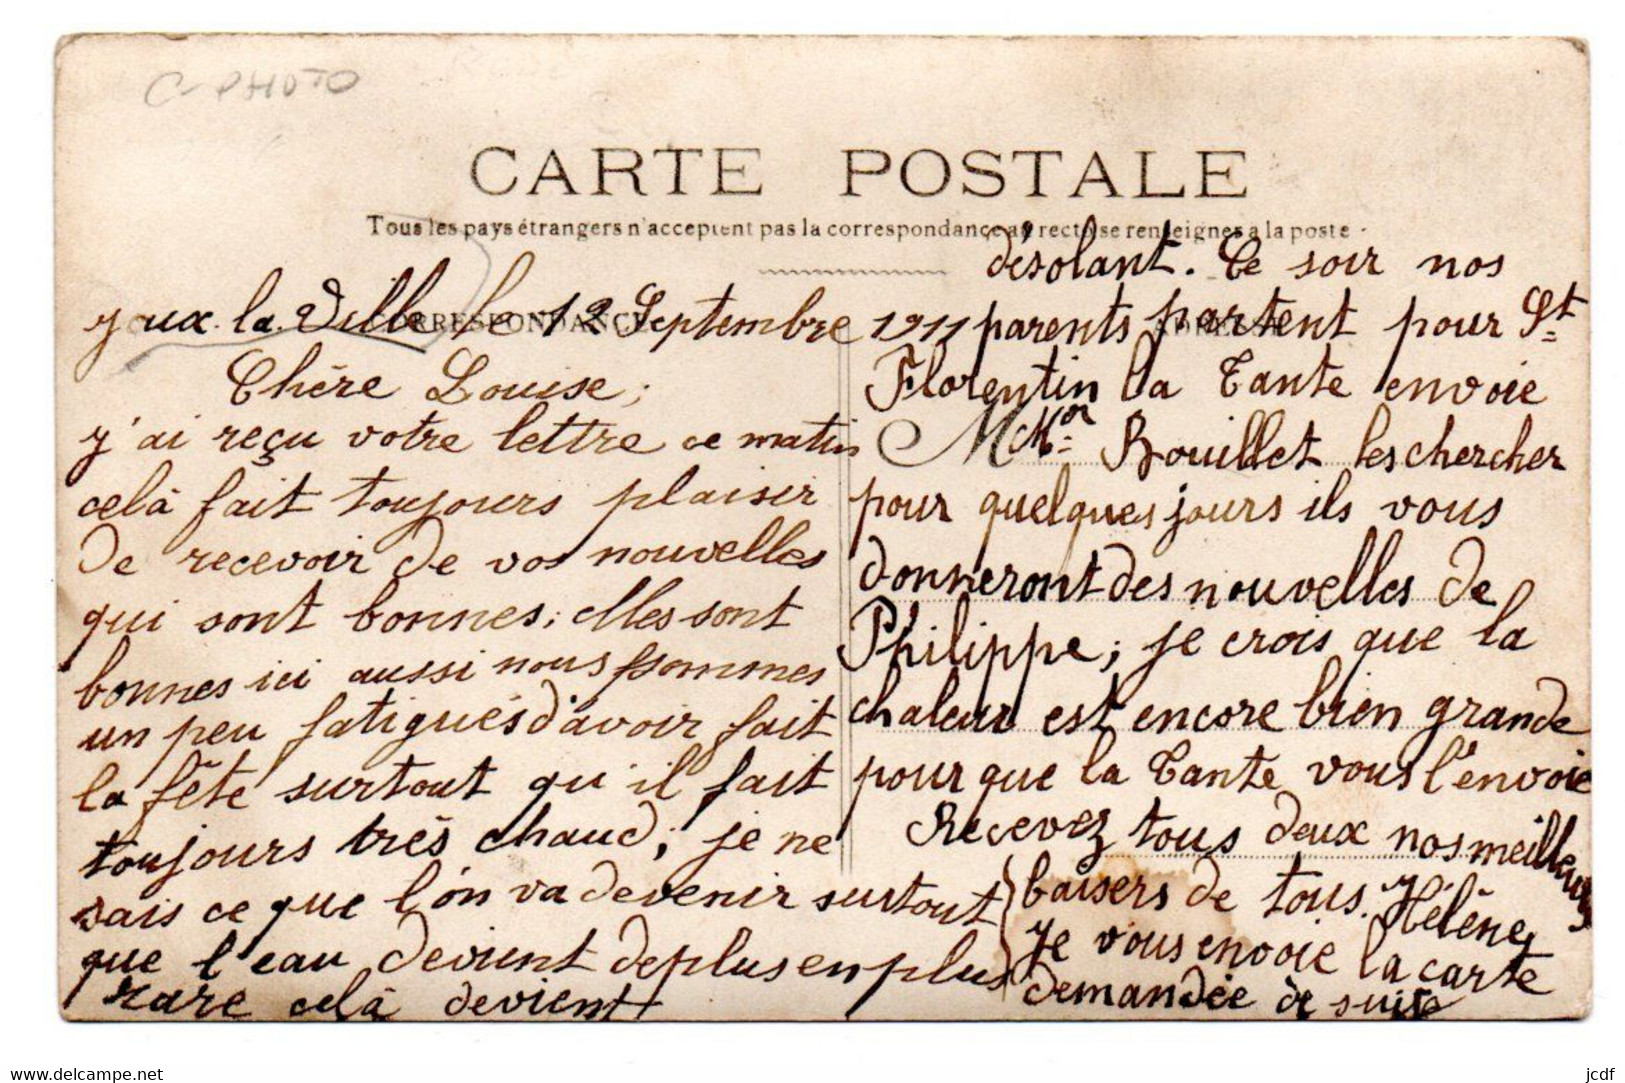 C-PHOTO
CARTE POSTALE
Tous les pays étrangers n'acceptent pas la correspondance au recto se renseigner a la poste
CORRESPONDANCE
Joux la Ville le 12 Septembre 1911
Chère Louise;
j'ai reçu votre lettre ce matin
celà fait toujours plaisir
de recevoir de vos nouvelles
qui sont bonnes; elles sont
bonnes ici aussi nous sommes
un peu fatigués d'avoir fait
la fête surtout qu'il fait
toujours très chaud; je ne
sais ce que l'on va devenir surtout
que l'eau devient de plus en plus
rare celà devient
désolant. Ce soir nos
parents partent pour St
Florentin la Tante envoie
Mor Bouillet les chercher
pour quelques jours ils vous
donneront des nouvelles de
Philippe; je crois que la
chaleur est encore bien grande
pour que la Tante vous l'envoie
Recevez tous deux nos meilleurs
baisers de tous. Hélène
Je vous envoie la carte
demandée de suite
delcampe.net
jcdf